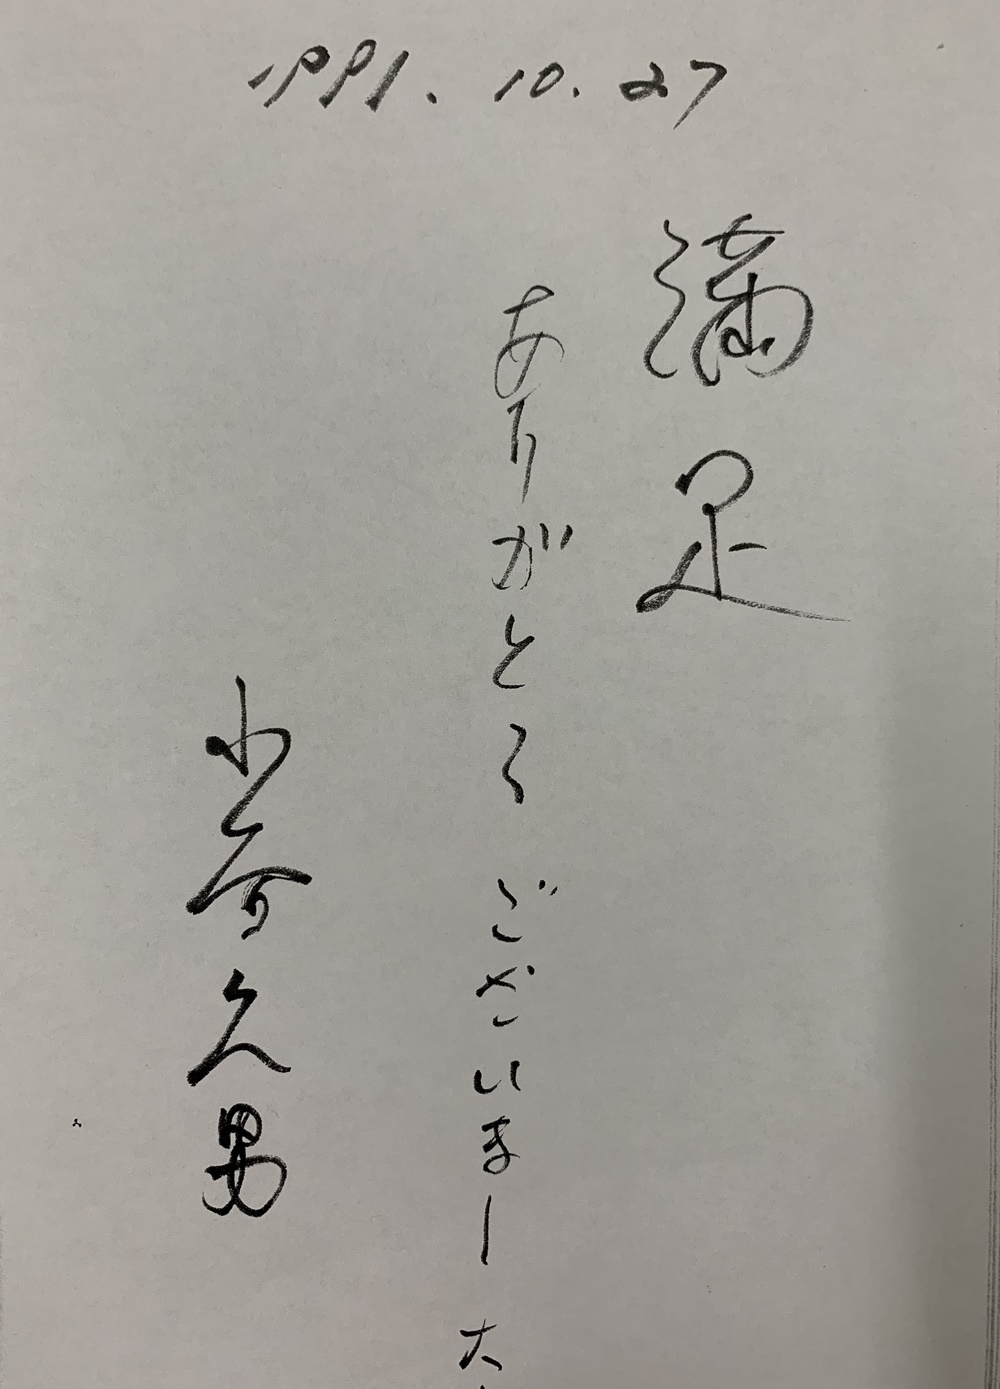 1991.10.27
満足
ありがとう ございました
久男